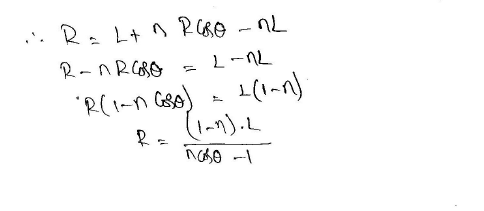 ∴ R = L + n R cosθ - nL
R - n R cosθ = L - nL
R(1-n cosθ) = L(1-n)
R = (1-n).L / ncosθ -1